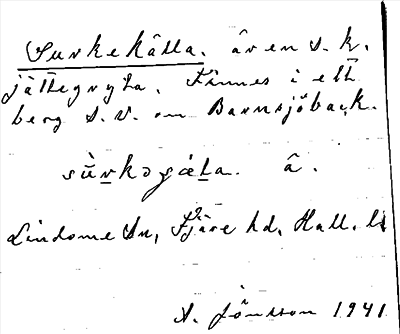 Surkekälla. är en s. k.
jättegryta. Finnes i ett
berg s.v. om Barnsjöback.
sùrkəgæla. â.
Lindome sn, Fjäre hd, Hall. l.
A. Jönsson 1941